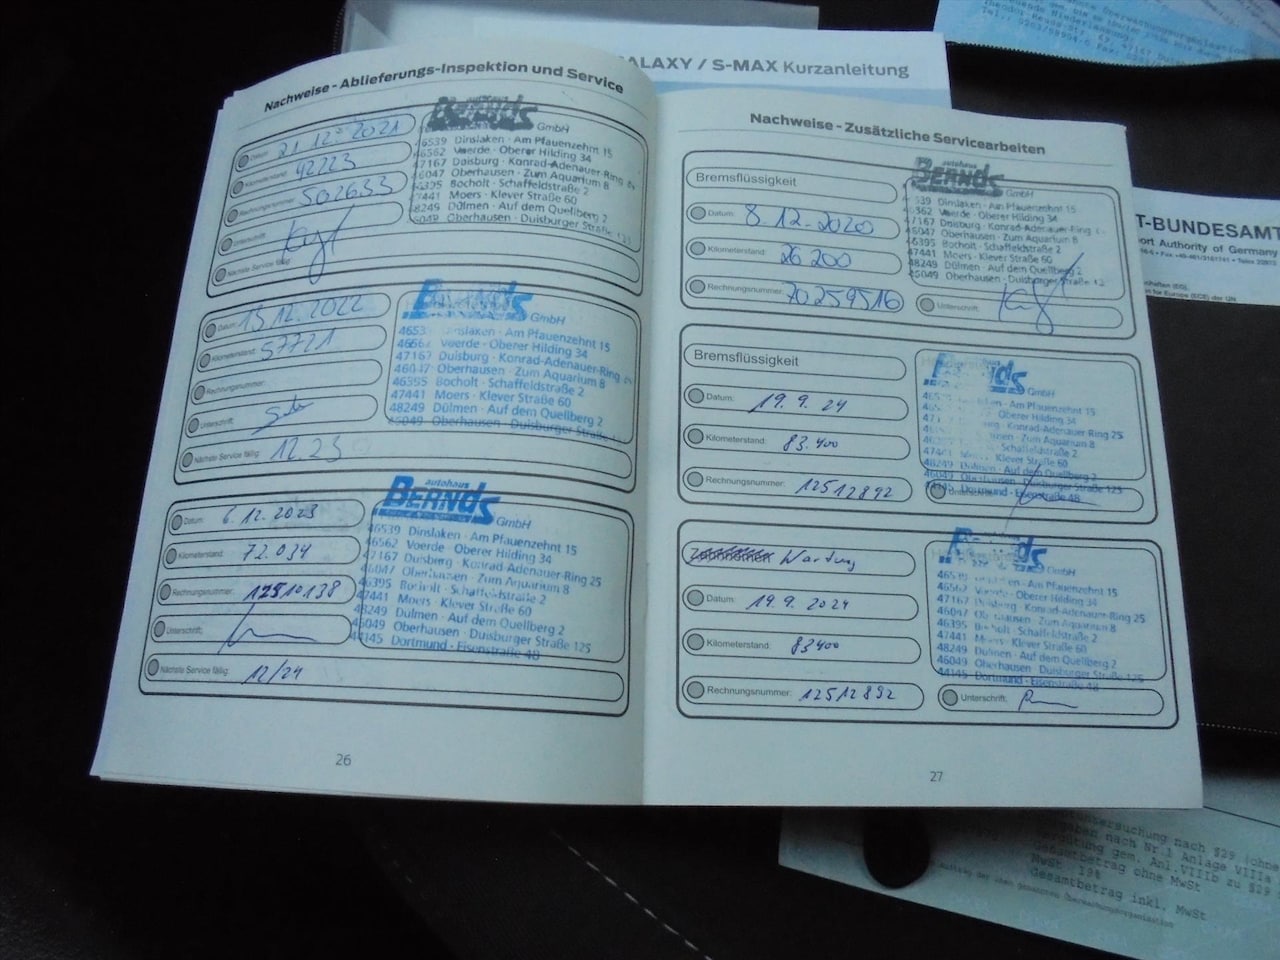 GALAXY / S-MAX Kurzanleitung
Nachweise - Ablieferungs-Inspektion und Service
Datum: 21.12. 2021
Kilometerstand: 42223
Rechnungsnummer: 502633
Unterschrift:
Nächste Service fällig:
autohaus
BERNDS
GmbH
46539 Dinslaken · Am Pfauenzehnt 15
46562 Voerde · Oberer Hilding 34
47167 Duisburg · Konrad-Adenauer-Ring
46047 Oberhausen · Zum Aquarium 8
46395 Bocholt · Schaffeldstraße 2
47441 Moers · Klever Straße 60
48249 Dülmen · Auf dem Quellberg 2
46049 Oberhausen · Duisburger Straße
Datum: 15.12.2022
Kilometerstand: 57721
Rechnungsnummer:
Unterschrift:
Nächste Service fällig: 12.23
BERNDS
GmbH
Dinslaken · Am Pfauenzehnt 15
Voerde · Oberer Hilding 34
47167 Duisburg · Konrad-Adenauer-Ring
46047 Oberhausen · Zum Aquarium 8
46395 Bocholt · Schaffeldstraße 2
47441 Moers · Klever Straße 60
48249 Dülmen · Auf dem Quellberg 2
46049 Oberhausen · Duisburger Straße
Datum: 6.12.2023
Kilometerstand: 72.034
Rechnungsnummer: 12510138
Unterschrift:
Nächste Service fällig: 12/24
autohaus
BERNDS
GmbH
46539 Dinslaken · Am Pfauenzehnt 15
46562 Voerde · Oberer Hilding 34
47167 Duisburg · Konrad-Adenauer-Ring 25
46047 Oberhausen · Zum Aquarium 8
46395 Bocholt · Schaffeldstraße 2
47441 Moers · Klever Straße 60
48249 Dülmen · Auf dem Quellberg 2
46049 Oberhausen · Duisburger Straße 125
44145 Dortmund · Eisenstraße 48
26
Nachweise - Zusätzliche Servicearbeiten
Bremsflüssigkeit
Datum: 8.12.2020
Kilometerstand: 26 200
Rechnungsnummer: 70259516
autohaus
BERNDS
GmbH
Dinslaken · Am Pfauenzehnt 15
Voerde · Oberer Hilding 34
47167 Duisburg · Konrad-Adenauer-Ring
46047 Oberhausen · Zum Aquarium 8
46395 Bocholt · Schaffeldstraße 2
47441 Moers · Klever Straße 60
48249 Dülmen · Auf dem Quellberg 2
46049 Oberhausen · Duisburger Straße
Unterschrift:
Bremsflüssigkeit
Datum: 19.9.24
Kilometerstand: 83.400
Rechnungsnummer: 12512892
GmbH
Am Pfauenzehnt 15
Oberer Hilding 34
Konrad-Adenauer-Ring 25
Zum Aquarium 8
Schaffeldstraße 2
Klever Straße 60
48249 Dülmen · Auf dem Quellberg 2
46049 Oberhausen · Duisburger Straße 125
44145 Dortmund · Eisenstraße 48
Unterschrift:
Wartung
Datum: 19.9.2024
Kilometerstand: 83400
Rechnungsnummer: 12512892
GmbH
Am Pfauenzehnt 15
Voerde · Oberer Hilding 34
47167 Duisburg · Konrad-Adenauer-Ring 25
46047 Oberhausen · Zum Aquarium 8
46395 Bocholt · Schaffeldstraße 2
47441 Moers · Klever Straße 60
48249 Dülmen · Auf dem Quellberg 2
46049 Oberhausen · Duisburger Straße 125
44145 Dortmund · Eisenstraße 48
Unterschrift:
27
T-BUNDESAMT
ort Authority of Germany
tersuchung nach §29 (ohne
gaben nach Nr.1 Anlage VIIIa
chtung gem. Anl.VIIIb zu §29
Gesamtbetrag ohne MwSt
MwSt 19%
Gesamtbetrag inkl. MwSt